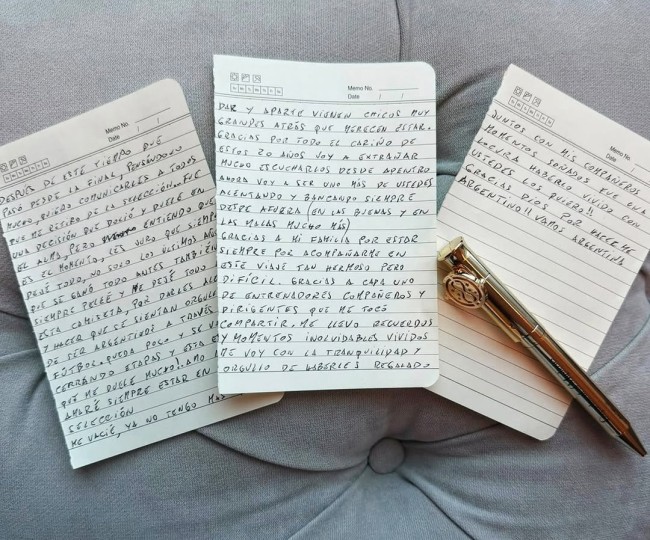 Memo No.
Date / /
DESPUES DE ESTE TIEMPO QUE
PASÓ DESDE LA FINAL, PENSANDOLO
MUCHO, QUIERO COMUNICARLES A TODOS
QUE ME RETIRO DE LA SELECCIÓN. FUE
UNA DECISIÓN QUE DOLIÓ Y DUELE EN
EL ALMA, PERO ENTIENDO QUE
ES EL MOMENTO, LES JURO QUE SIEMPRE
DEJÉ TODO, NO SOLO LOS ULTIMOS AÑOS
QUE SE GANÓ TODO ANTES TAMBIÉN
SIEMPRE PELEÉ Y ME DEJÉ TODO
ESTA CAMISETA, POR DARLES
Y HACER QUE SE SIENTAN
DE SER ARGENTINOS A TRAVÉS
FÚTBOL. QUEDA POCO Y SE
CERRANDO ETAPAS Y ESTA
QUE ME DUELE MUCHO! AMO
AMARÉ SIEMPRE ESTAR EN
SELECCIÓN
ME VACIÉ, YA NO TENGO MAS
Memo No.
Date / /
DAR Y APARTE VIENEN CHICOS MUY
GRANDES ATRÁS QUE MERECEN ESTAR.
GRACIAS POR TODO EL CARIÑO DE
ESTOS 20 AÑOS VOY A EXTRAÑAR
MUCHO ESCUCHARLOS DESDE ADENTRO
AHORA VOY A SER UNO MÁS DE USTEDES
ALENTANDO Y BANCANDO SIEMPRE
DESDE AFUERA (EN LAS BUENAS Y EN
LAS MALAS MUCHO MÁS)
GRACIAS A MI FAMILIA POR ESTAR
SIEMPRE POR ACOMPAÑARME EN
ESTE VIAJE TAN HERMOSO PERO
DIFÍCIL. GRACIAS A CADA UNO
DE ENTRENADORES COMPAÑEROS Y
DIRIGENTES QUE ME TOCÓ
COMPARTIR. ME LLEVO RECUERDOS
Y MOMENTOS INOLVIDABLES VIVIDOS
ME VOY CON LA TRANQUILIDAD Y
ORGULLO DE HABERLES REGALADO
Memo No.
Date / /
JUNTOS CON MIS COMPAÑEROS
MOMENTOS SOÑADOS. FUE UNA
LOCURA HABERLO VIVIDO CON
USTEDES. LOS QUIERO!!
GRACIAS DIOS POR HACERME
ARGENTINO!! VAMOS ARGENTINA